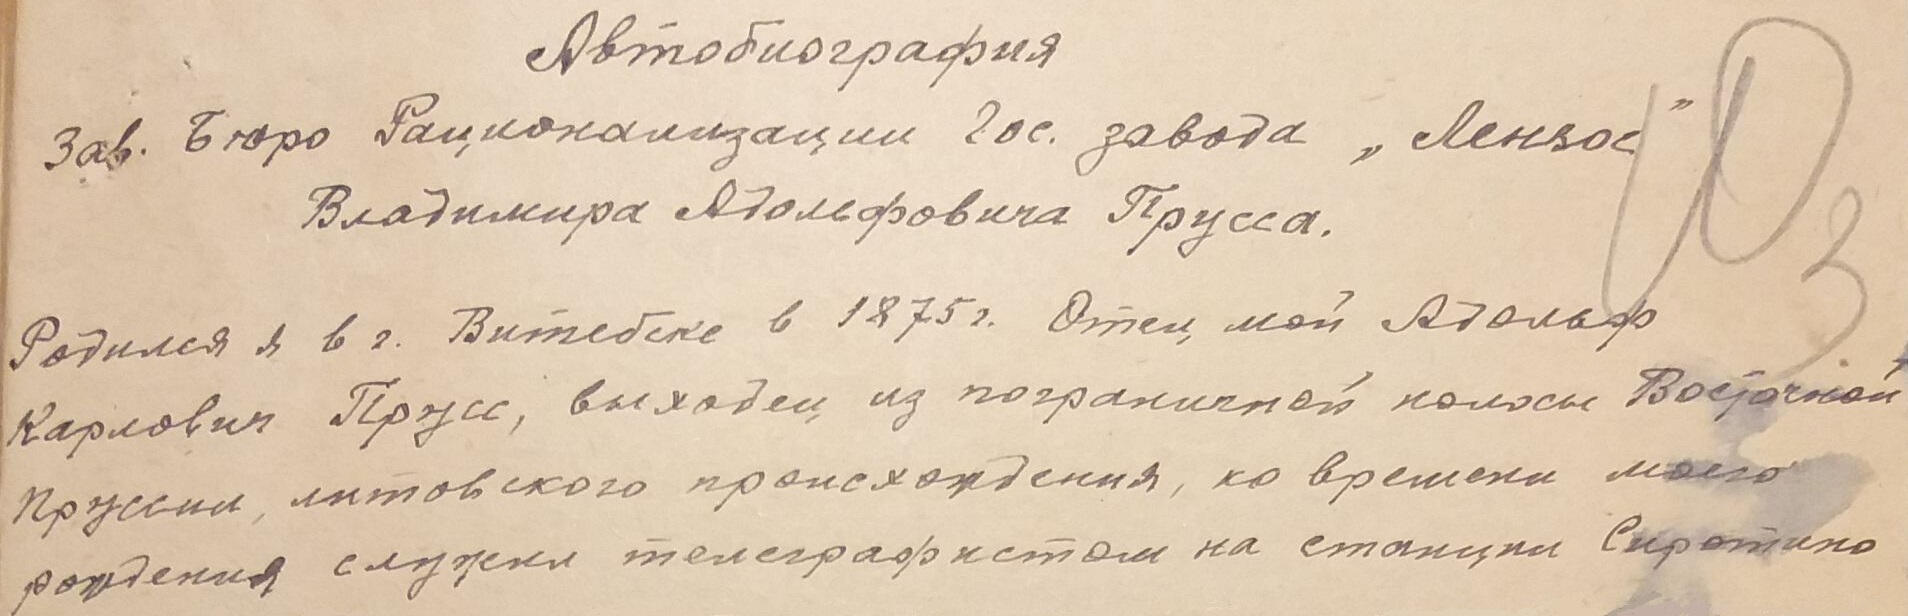 Автобиография
Зав. Бюро Рационализации Гос. завода „Лензос"
Владимира Адольфовича Прусса.
Родился я в г. Витебске в 1875 г. Отец мой Адольф
Карлович Прусс, выходец из пограничной полосы Восточной
Пруссии, литовского происхождения, ко времени моего
рождения служил телеграфистом на станции Сиротино